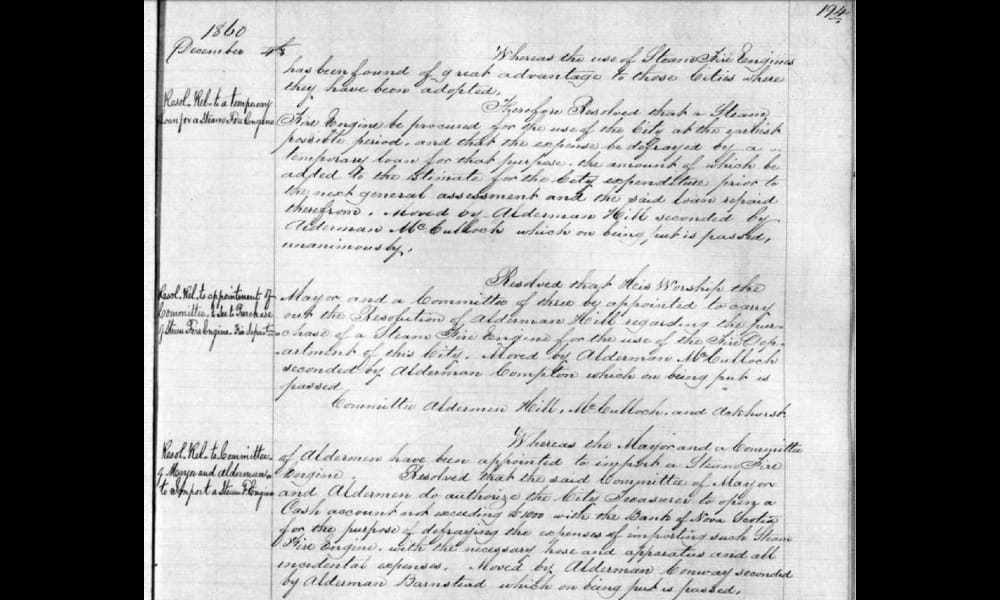 194
1860
December 4th
Whereas the use of Steam Fire Engines
has been found of great advantage to those Cities where
they have been adopted.
Resol. Rel. to a temporary
loan for a Steam Fire Engine
Therefore Resolved that a Steam
Fire Engine be procured for the use of the City at the earliest
possible period, and that the expense be defrayed by a
temporary loan for that purpose. the amount of which be
added to the Estimate for the City expenditure prior to
the next general assessment and the said loan repaid
therefrom. Moved by Alderman Hill seconded by
Alderman McCulloch which on being put is passed,
unanimously.
Resol. Rel. to appointment of
Committee, to Purchase
of Steam Fire Engine. Fire Depart
Resolved that His Worship the
Mayor and a Committee of three by appointed to carry
out the Resolution of Alderman Hill regarding the pur-
chase of a Steam Fire Engine for the use of the Fire Dep-
artment of this City. Moved by Alderman McCulloch
seconded by Alderman Compton which on being put is
passed
Committee Aldermen Hill, McCulloch, and Ackhurst
Resol. Rel. to Committee
of Mayor and alderman
to Import a Steam F. Engine
Whereas the Mayor and a Committee
of Aldermen have been appointed to import a Steam Fire
Engine. Resolved that the said Committee of Mayor
and Aldermen do authorize the City Treasurer to open a
Cash account not exceeding £1000 with the Bank of Nova Scotia
for the purpose of defraying the expenses of importing such Steam
Fire Engine, with the necessary hose and apparatus and all
incidental expenses. Moved by Alderman Conway seconded
by Alderman Barnstead which on being put is passed.